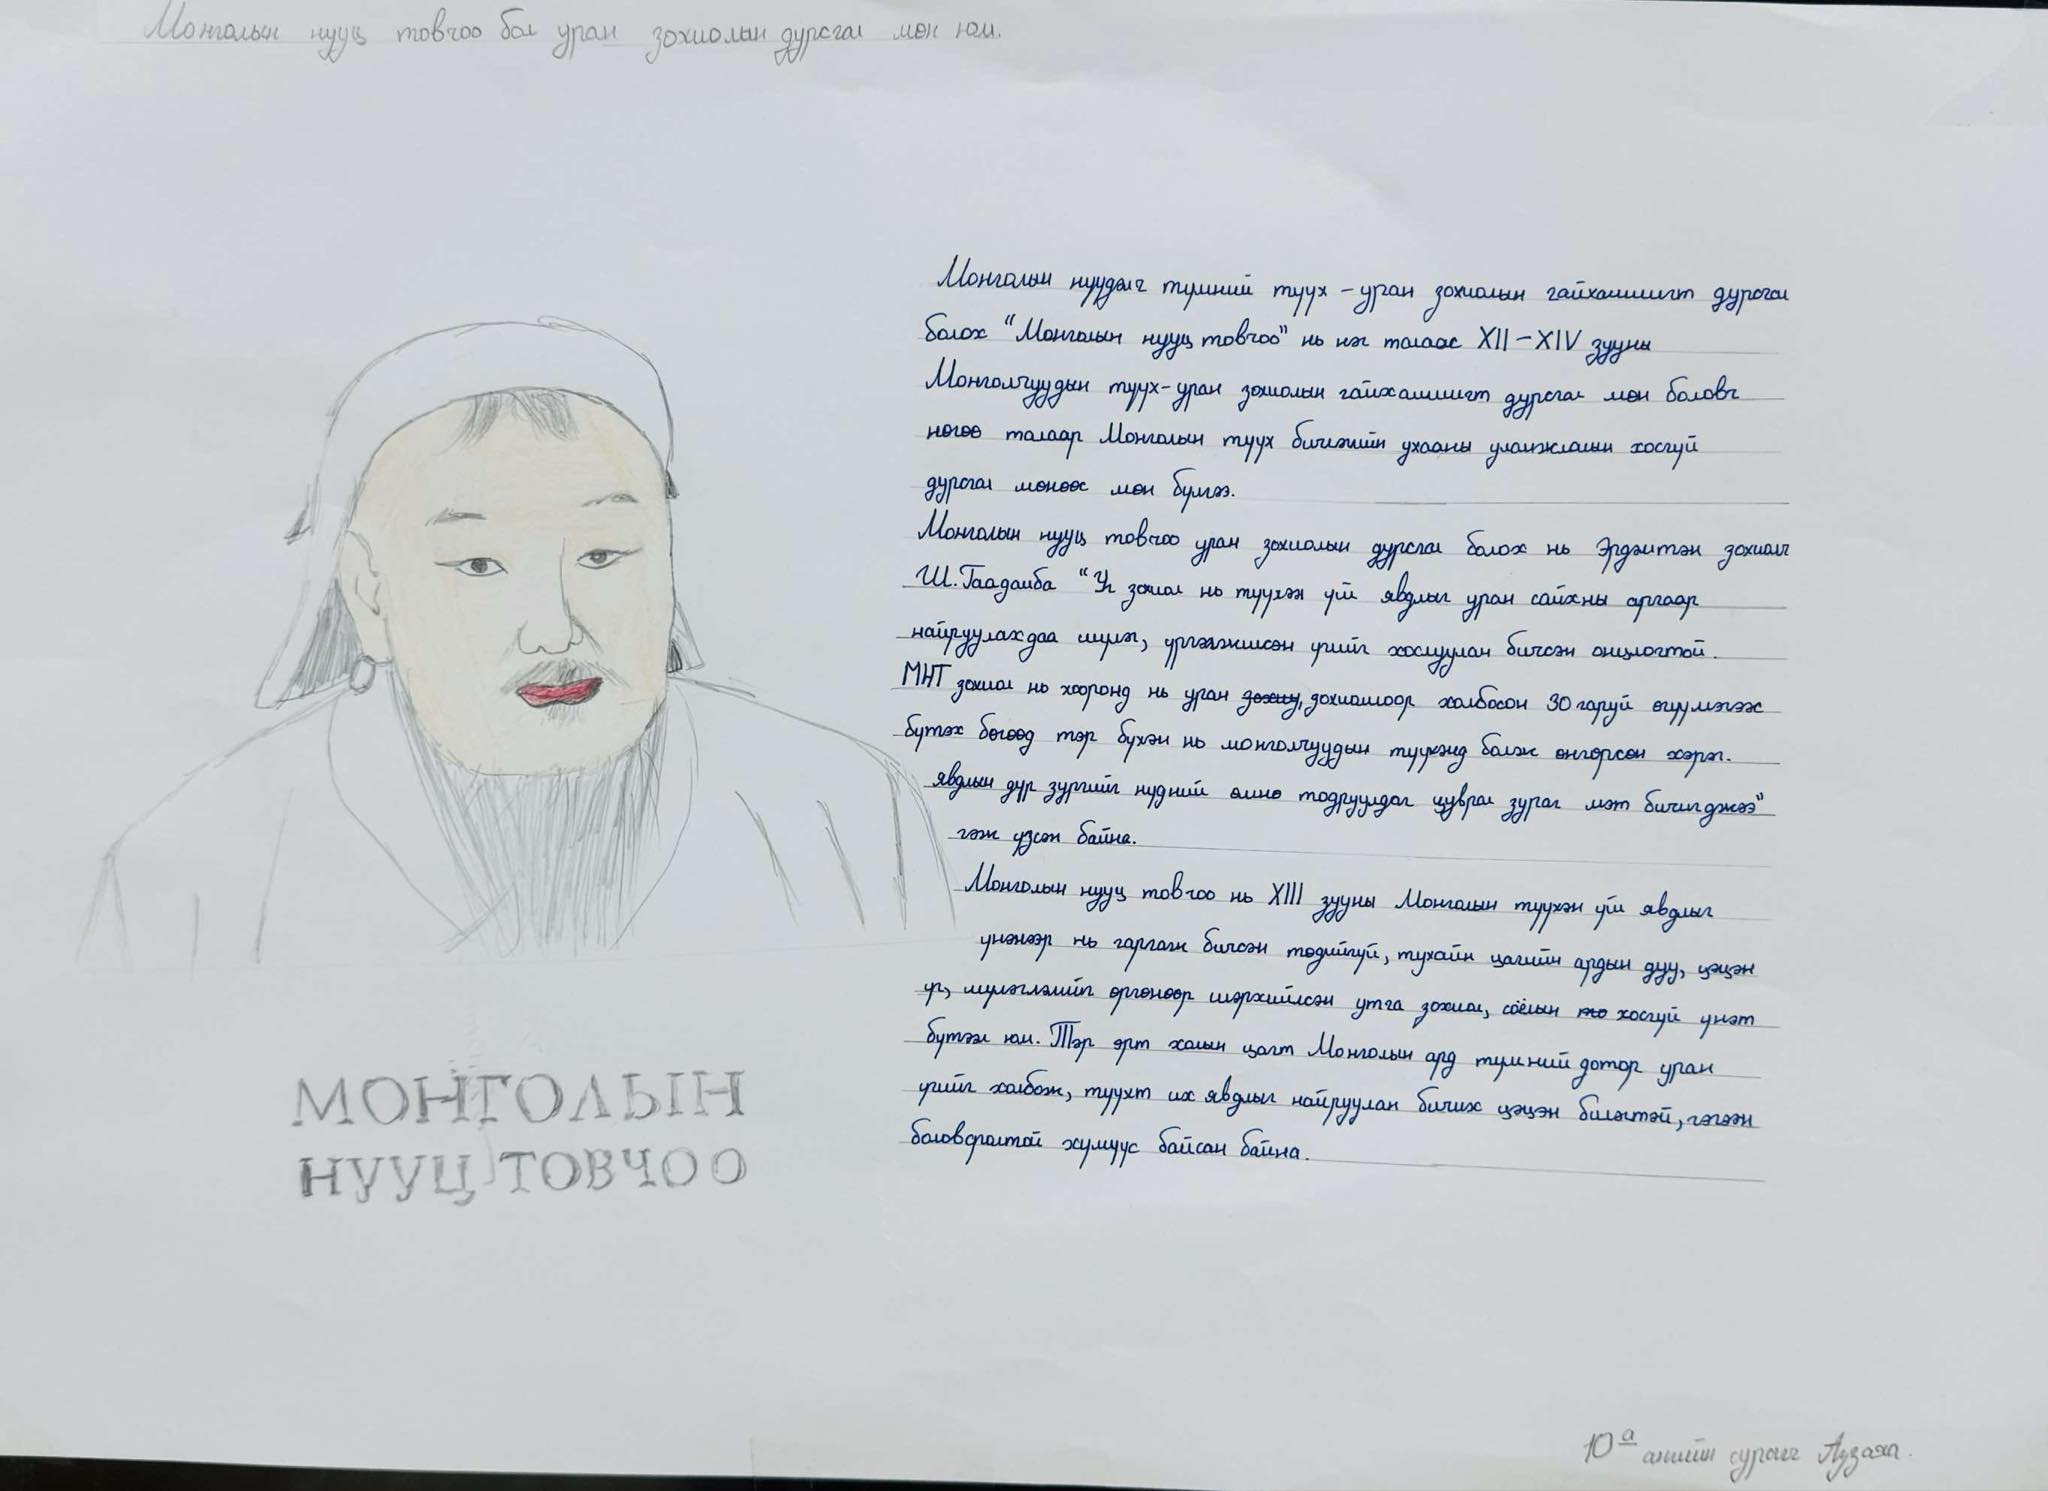 Монголын нууц товчоо бол уран зохиолын дурсгал мөн юм.
Монголын нүүдэлч түмний түүх - уран зохиолын гайхамшигт дурсгал
болох "Монголын нууц товчоо" нь нэг талаас XII - XIV зууны
Монголчуудын түүх - уран зохиолын гайхамшигт дурсгал мөн боловч
нөгөө талаар Монголын түүх бичлэгийн ухааны уламжлалын хосгүй
дурсгал мөнөөс мөн бүлгээ.
Монголын нууц товчоо уран зохиолын дурсгал болох нь Эрдэмтэн зохиолч
Ш.Гаадамба "Уг зохиол нь түүхэн үйл явдлыг уран сайхны аргаар
найруулахдаа шүлэг, үргэлжилсэн үгийг хослуулан бичсэн онцлогтой.
МНТ зохиол нь хооронд нь уран зохиу, зохиомжоор холбосон 30 гаруй өгүүлэгээс
бүтэх бөгөөд тэр бүхэн нь монголчуудын түүхэнд болж өнгөрсөн хэрэг.
явдлын дүр зургийг нүдний өмнө тодруулдаг цуврал зураг мэт бичигджээ"
гэж үзсэн байна.
Монголын нууц товчоо нь XIII зууны Монголын түүхэн үйл явдлыг
үнэнээр нь гаргаж бичсэн төдийгүй, тухайн цагийн ардын дуу, цэцэн
үг, шүлэглэлийг өргөнөөр шэрхийлсэн утга зохиол, соёлын хосгүй үнэт
бүтээл юм. Тэр эрт халын цагт Монголын ард түмний дотор уран
үгийг холбож, түүхт их явдлыг найруулан бичих цэцэн билэгтэй, гэгээн
боловсролтой хүмүүс байсан байна.
МОНГОЛЫН
НУУЦ ТОВЧОО
10ᵃ ангийн сурагч